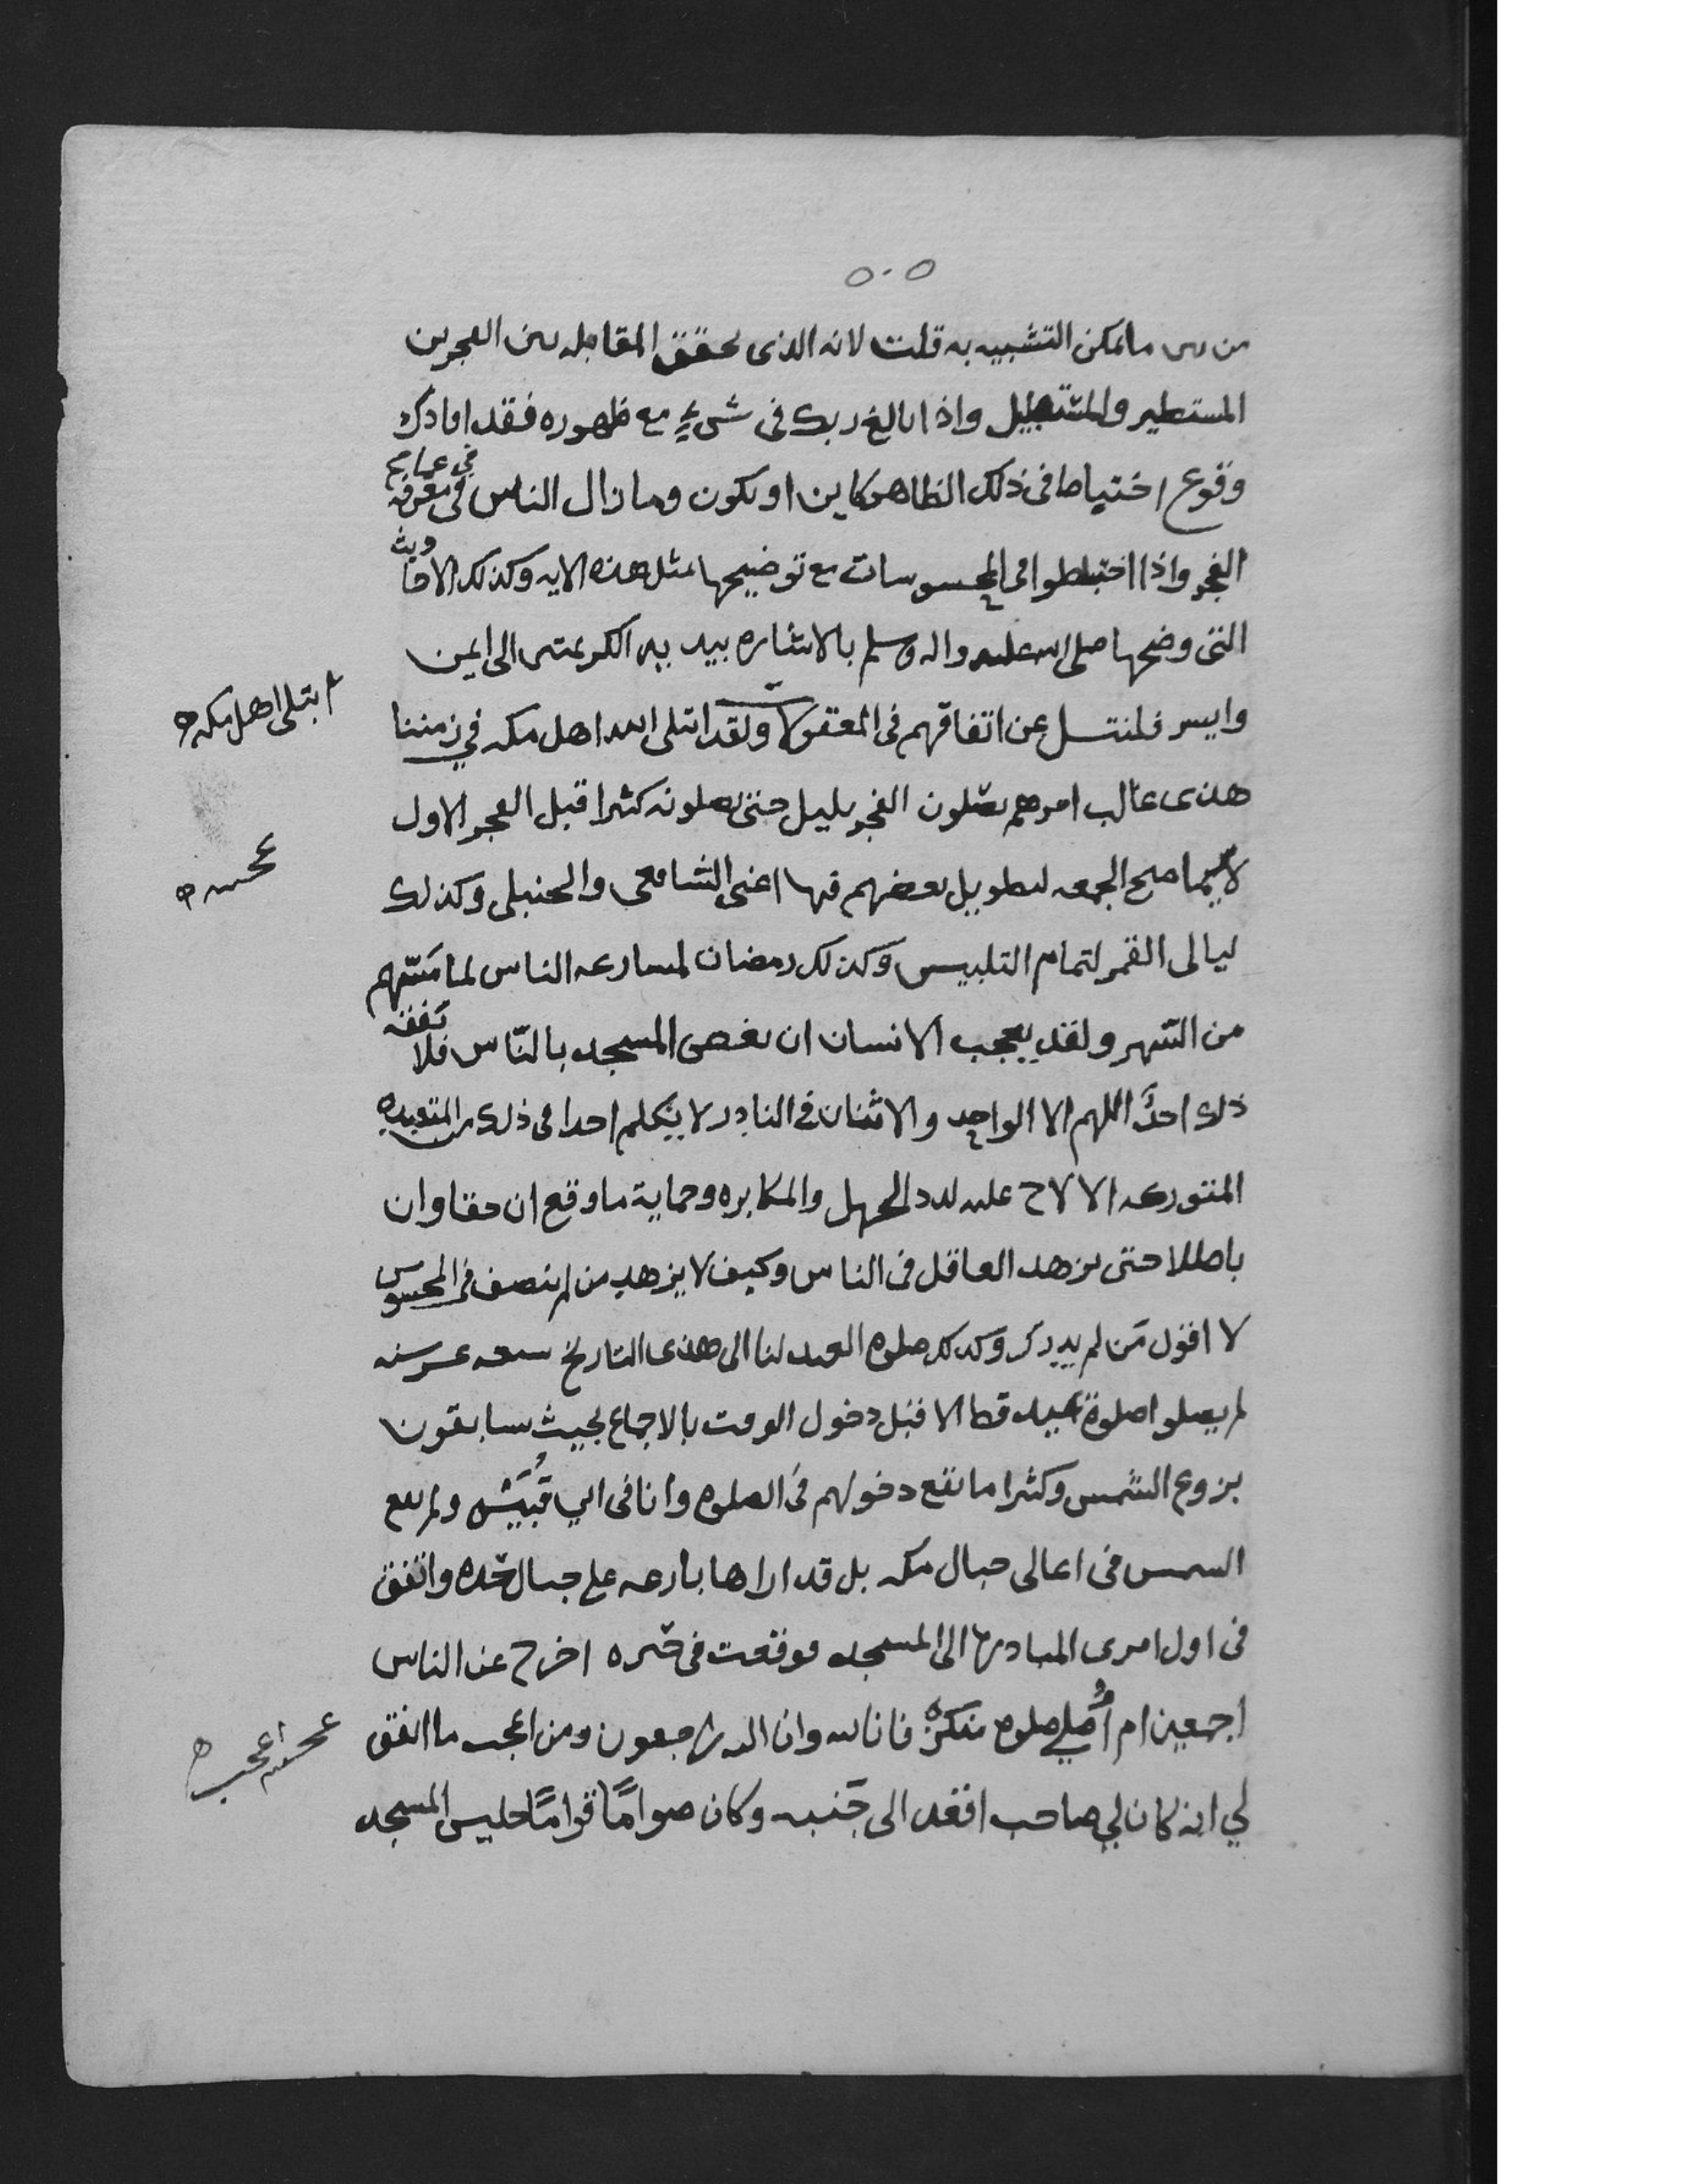 ٥٠٥
من بين ما يمكن التشبيه به قلت لانه الذى يحقق المقابله بين الفجرين
المستطير والمستطيل واذا بالغ ربك فى شىء مع ظهوره فقد افادك
وقوع اختباطا فى ذلك الظاهر كاين او يكون وما زال الناس فى معرفة
فى عماية
الفجر واذا اختبطوا فى المحسوسات مع توضيحها بمثل هذه الايه وكذلك الاحاديث
التى وضحها صلى الله عليه واله وسلم بالاشاره بيديه الكريمتين الى ايمن
وايسر فلا تسل عن اتفاقهم فى المعقول ولقد ابتلى الله اهل مكه في زمننا
ابتلى اهل مكه
هذى غالب امرهم يصلون الفجر بليل حتى يصلونه كثيرا قبل الفجر الاول
لا سيما صبح الجمعه لتطويل بعضهم فيها اعنى الشافعى والحنبلى وكذلك
عجيبه
ليالى القمر لتمام التلبيس وكذلك رمضان لمسارعه الناس لما مسّهم
من السّهر ولقد يعجب الانسان ان يغص المسجد بالنّاس فلا يفقه
ذلك احدٌ اللهم الا الواحد والاثنان فى النادر لا يتكلم احدا فى ذلك من المتعبده
المتورعه الا لاح عليه لدد الجهل والمكابره وحماية ما وقع ان حقا وان
باطلا حتى يزهد العاقل فى الناس وكيف لا يزهد من لم ينصف فى المحسوس
لا اقول مَن لم يدرك وكذلك صلوه العيد لنا الى هذى التاريخ سبعه عشر سنه
لم يصلوا صلوة عيد قط الا قبل دخول الوقت بالاجماع بحيث يسابقون
بزوغ الشمس وكثيرا ما يقع دخولهم فى الصلوه وانا فى ابي قبيس ولم تقع
الشمس فى اعالى جبال مكه بل قد اراها بازغه على جبال جده واتفق
فى اول امرى المبادرة الى المسجد فوقعت فى حيره اخرج عن الناس
اجمعين ام أُصلي صلوه منكرةً فانا لله وانا اليه راجعون ومن اعجب ما اتفق
عجيبه اعجب
لي انه كان لي صاحب اقعد الى جَنبه وكان صوامًا قوامًا حليس المسجد